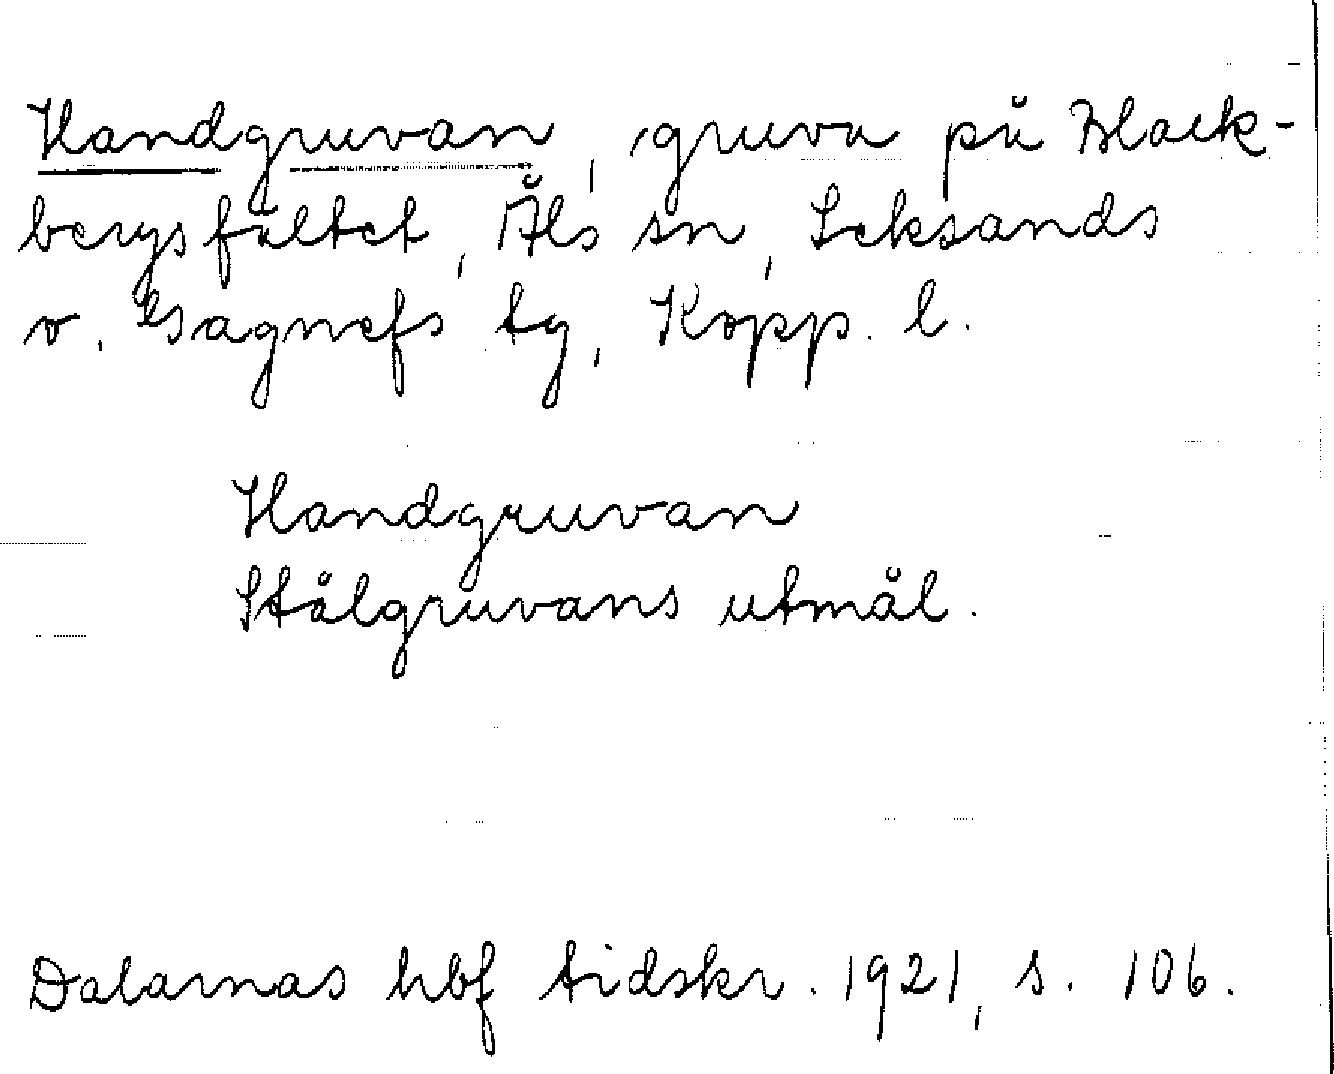 Handgruvan, gruva på Black-
bergsfältet, Åls sn, Leksands
o. Gagnefs tg, Kopp. l.
Handgruvan
Stålgruvans utmål.
Dalarnas hbf tidskr. 1921, s. 106.